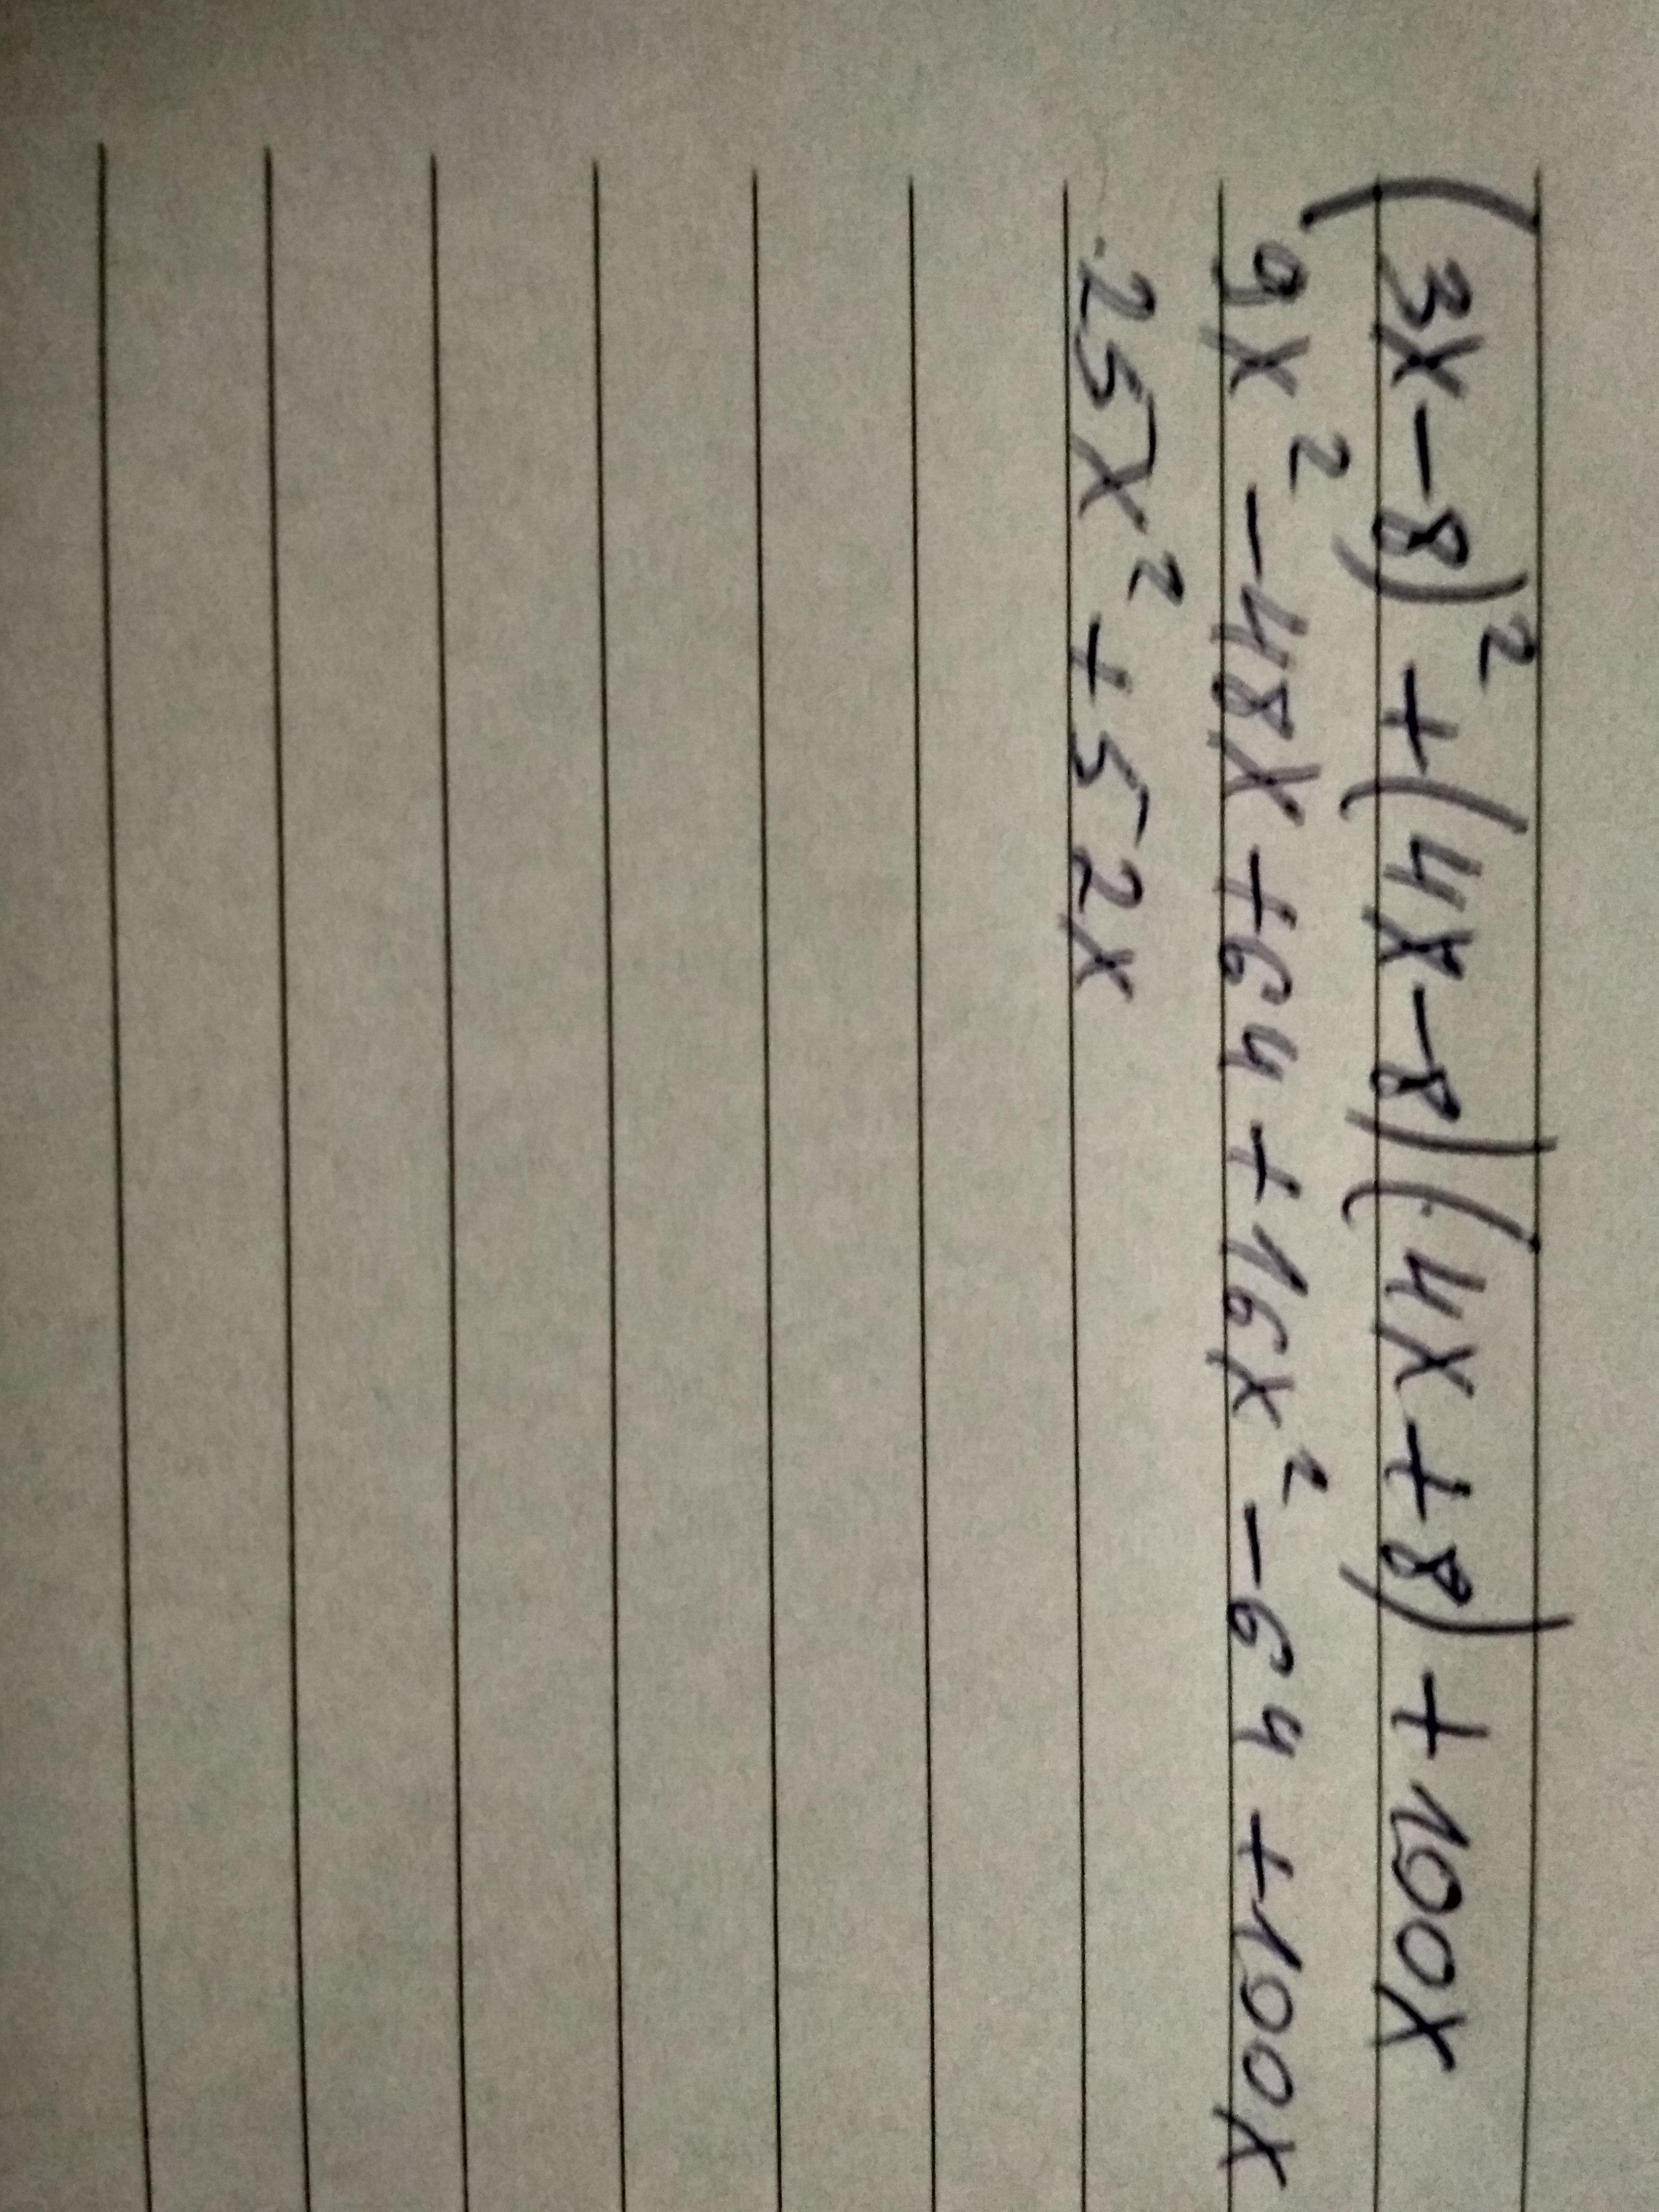 (3x-8)² + (4x-8)(4x+8) + 100x
9x² - 48x + 64 + 16x² - 64 + 100x
25x² + 52x